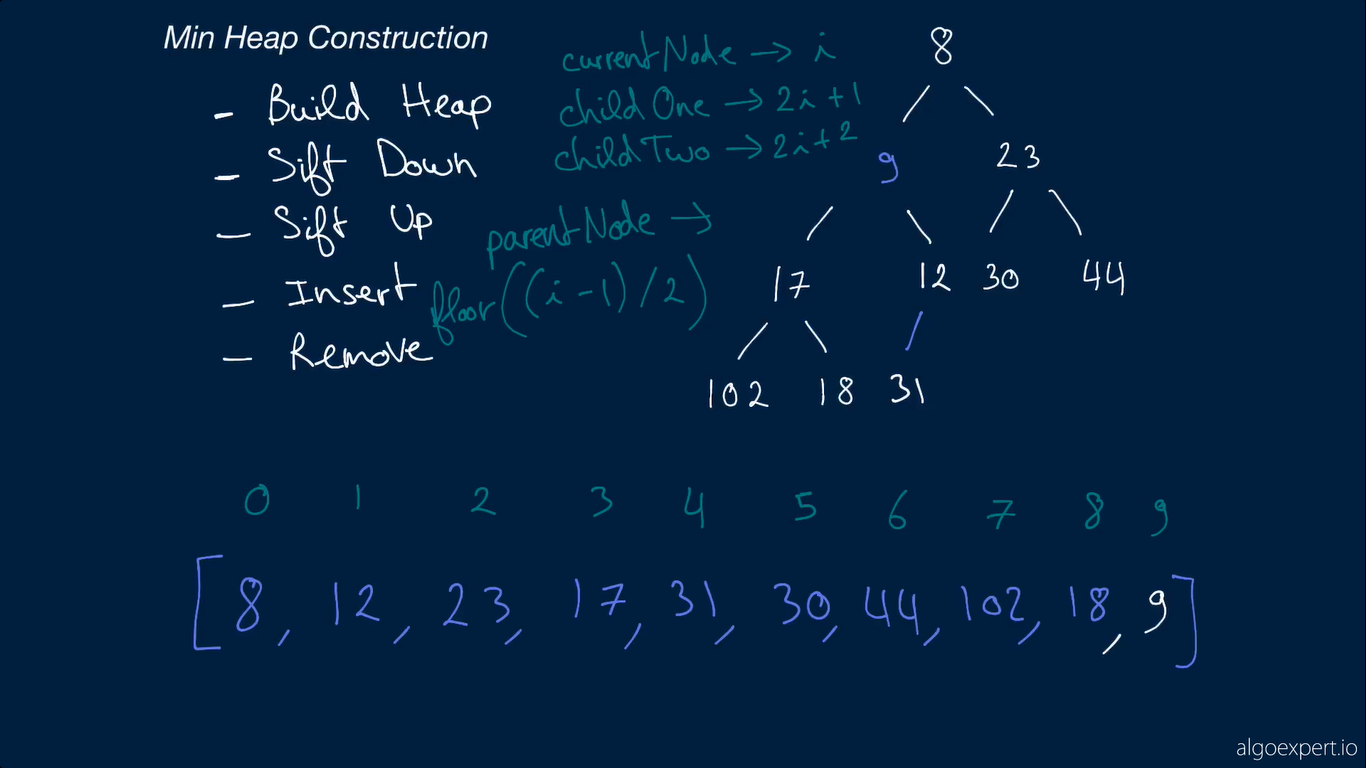 Min Heap Construction
- Build Heap
- Sift Down
- Sift Up
- Insert
- Remove
currentNode → i
childOne → 2i+1
childTwo → 2i+2
parentNode →
floor((i-1)/2)
8
9 23
17 12 30 44
102 18 31
0 1 2 3 4 5 6 7 8 9
[8, 12, 23, 17, 31, 30, 44, 102, 18, 9]
algoexpert.io